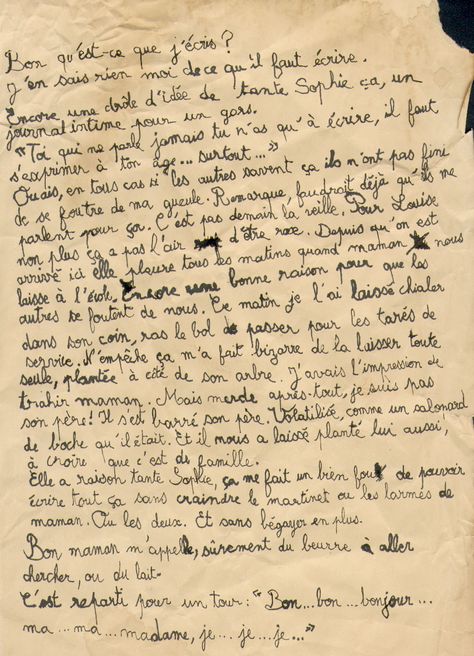 Bon qu'est-ce que j'écris ?
J'en sais rien moi de ce qu'il faut écrire.
Encore une drôle d'idée de tante Sophie ça, un
journal intime pour un gars.
"Toi qui ne parle jamais tu n'as qu'à écrire, il faut
s'exprimer à ton âge... surtout..."
Ouais, en tous cas si les autres savent ça ils n'ont pas fini
de se foutre de ma gueule. Remarque, faudrait déjà qu'ils me
parlent pour ça. C'est pas demain la veille. Pour Louise
non plus ça a pas l'air d'être rose. Depuis qu'on est
arrivé ici elle pleure tous les matins quand maman nous
laisse à l'école. Encore une bonne raison pour que les
autres se foutent de nous. Ce matin je l'ai laissé chialer
dans son coin, ras le bol de passer pour les tarés de
service. N'empêche ça m'a fait bizarre de la laisser toute
seule, plantée à côté de son arbre. J'avais l'impression de
trahir maman. Mais merde après-tout, je suis pas
son père ! Il s'est barré son père. Volatilisé, comme un salonard
de boche qu'il était. Et il nous a laissé planté lui aussi,
à croire que c'est de famille.
Elle a raison tante Sophie, ça me fait un bien fou de pouvoir
écrire tout ça sans craindre le martinet ou les larmes de
maman. Ou les deux. Et sans bégayer en plus.
Bon maman m'appelle, sûrement du beurre à aller
chercher, ou du lait.
C'est reparti pour un tour : "Bon... bon... bonjour...
ma... ma... madame, je... je... je..."